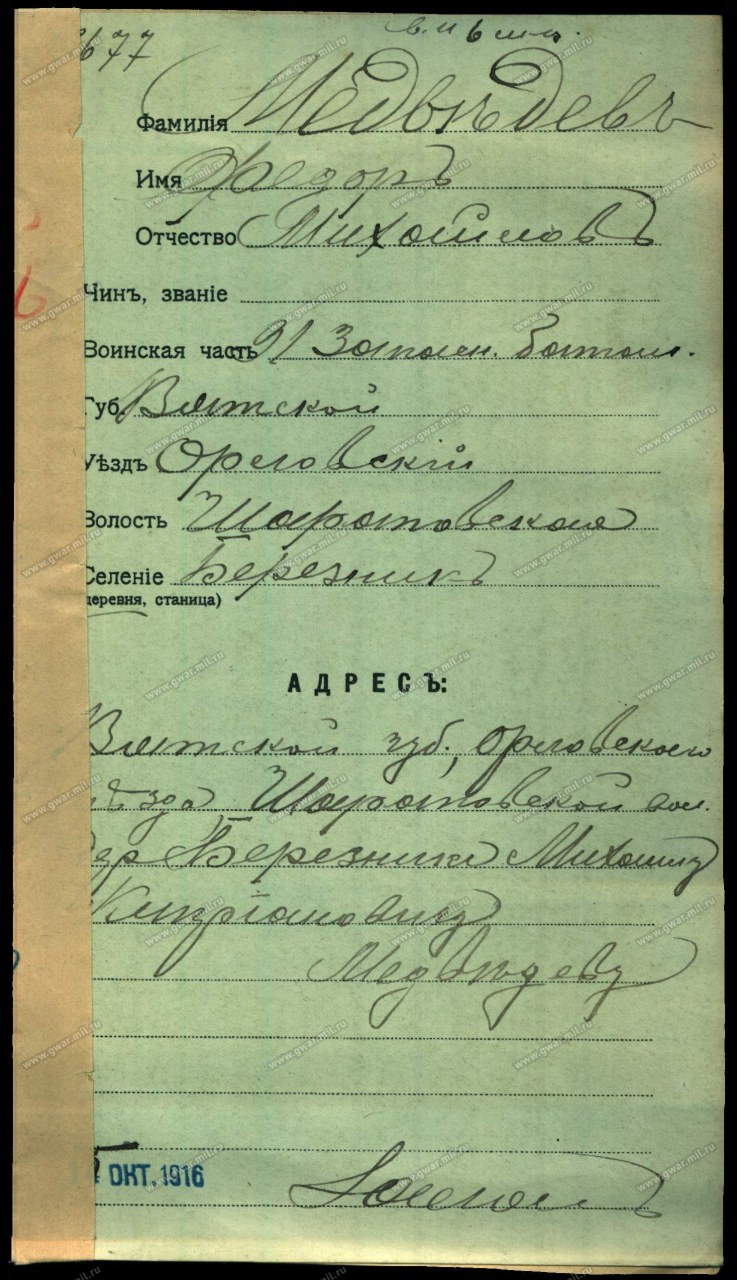 677
Фамилія Медвѣдевъ
Имя Федоръ
Отчество Михайловъ
Чинъ, званіе
Воинская часть 91 Запасн. батал.
Губ. Вятской
Уѣздъ Орловскій
Волость Шараповская
Селеніе Березникъ
деревня, станица)
АДРЕСЪ:
Вятской губ., Орловскаго
уѣзда, Шараповской вол.
дер Березники Михаилу
Кипріановичу
Медвѣдеву
ОКТ. 1916